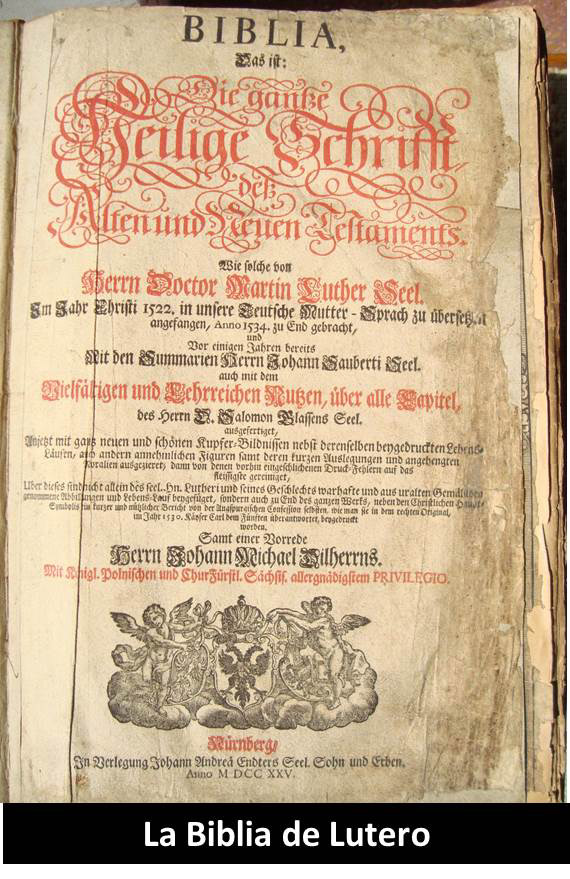 BIBLIA,
Das ist:
Die gantze
Heilige Schrifft,
deß
Alten und Neuen Testaments.
Wie solche von
Herrn Doctor Martin Luther Seel.
Im Jahr Christi 1522. in unsere Teutsche Mutter-Sprach zu übersetzen
angefangen, Anno 1534. zu End gebracht,
und
Vor einigen Jahren bereits
Mit den Summarien Herrn Johann Sauberti Seel.
auch mit dem
Vielfältigen und Lehrreichen Nutzen, über alle Capitel,
des Herrn D. Salomon Glassens Seel.
ausgefertiget,
Anjetzt mit gantz neuen und schönen Kupfer-Bildnissen nebst derenselben beygedruckten Lebens-
Läufen, auch andern annehmlichen Figuren samt deren kurzen Auslegungen und angehengten
Moralien ausgezieret, dann von denen vorhin eingeschlichenen Druck-Fehlern auf das
fleissigste gereiniget,
Uber dieses sind nicht allein des seel. Hn. Lutheri und seines Geschlechts warhafte und aus uralten Gemählden
genommene Abbildungen und Lebens-Lauf beygefüget, sondern auch zu End des ganzen Werks, neben den Christlichen Haupt-
Symbolis ein kurzer und nützlicher Bericht von der Augspurgischen Confession selbsten, wie man sie in dem rechten Original,
im Jahr 1530. Käyser Carl dem Fünften überantwortet, beygedruckt
worden.
Samt einer Vorrede
Herrn Johann Michael Dilherrns.
Mit Königl. Polnischen und ChurFürstl. Sächsis. allergnädigstem PRIVILEGIO.
Nürnberg,
In Verlegung Johann Andreä Endters Seel. Sohn und Erben.
Anno M DCC XXV.
La Biblia de Lutero